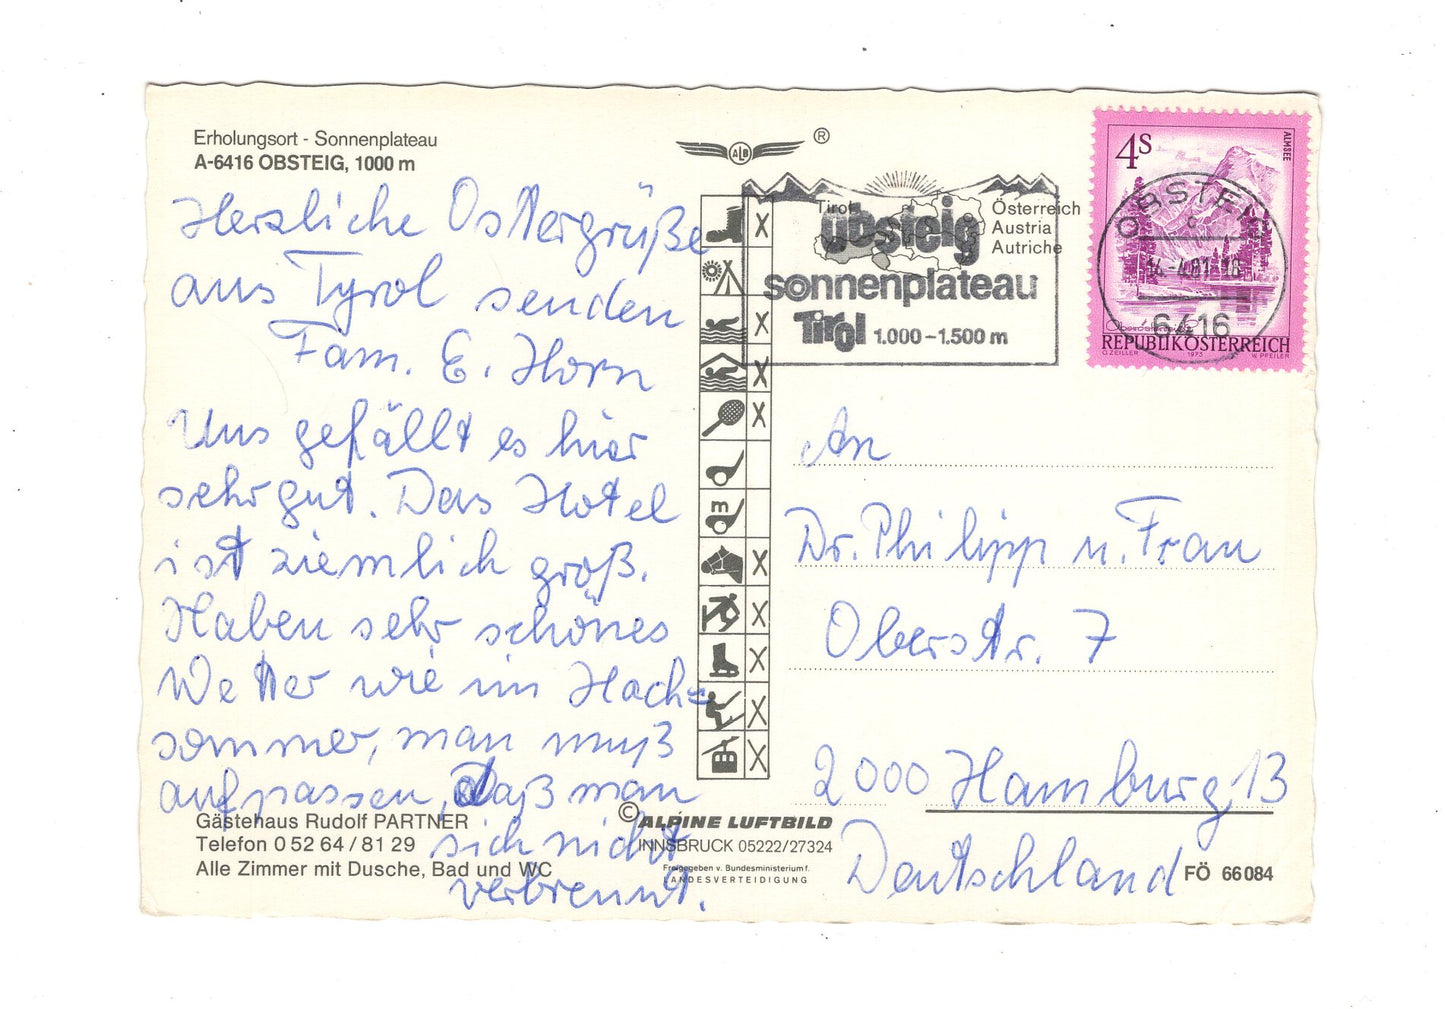 Erholungsort - Sonnenplateau
A-6416 OBSTEIG, 1000 m
Herzliche Ostergrüße
aus Tyrol senden
Fam. E. Horn
Uns gefällt es hier
sehr gut. Das Hotel
ist ziemlich groß.
Haben sehr schönes
Wetter wie im Hoch=
sommer, man muß
aufpassen, daß man
sich nicht
verbrennt.
Gästehaus Rudolf PARTNER
Telefon 0 52 64 / 81 29
Alle Zimmer mit Dusche, Bad und WC
ALB
®
m
© ALPINE LUFTBILD
INNSBRUCK 05222/27324
Freigegeben v. Bundesministerium f.
LANDESVERTEIDIGUNG
Tirol
Österreich
Austria
Autriche
obsteig
sonnenplateau
Tirol 1.000-1.500 m
4S
ALMSEE
REPUBLIK ÖSTERREICH
O. ZEILLER 1973 W. PFEILER
OBSTEIG
c
14.-4.81-18
6416
An
Dr. Philipp u. Frau
Oberstr. 7
2000 Hamburg 13
Deutschland
FÖ 66084